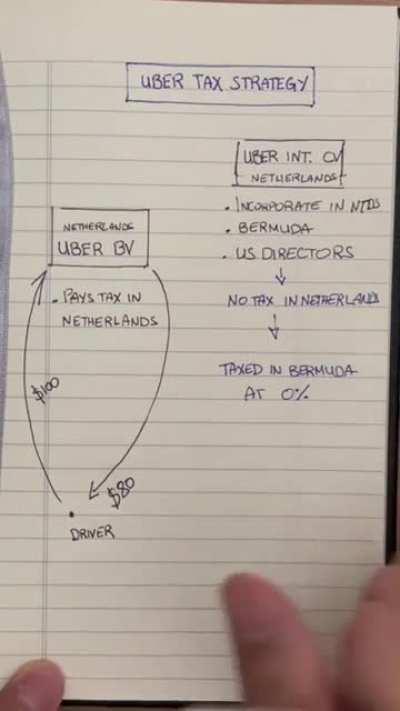 UBER TAX STRATEGY
UBER INT. CV
NETHERLANDS
. INCORPORATE IN NTDS
. BERMUDA
. US DIRECTORS
NO TAX IN NETHERLANDS
TAXED IN BERMUDA
AT 0%
NETHERLANDS
UBER BV
. PAYS TAX IN
NETHERLANDS
$100
$80
DRIVER